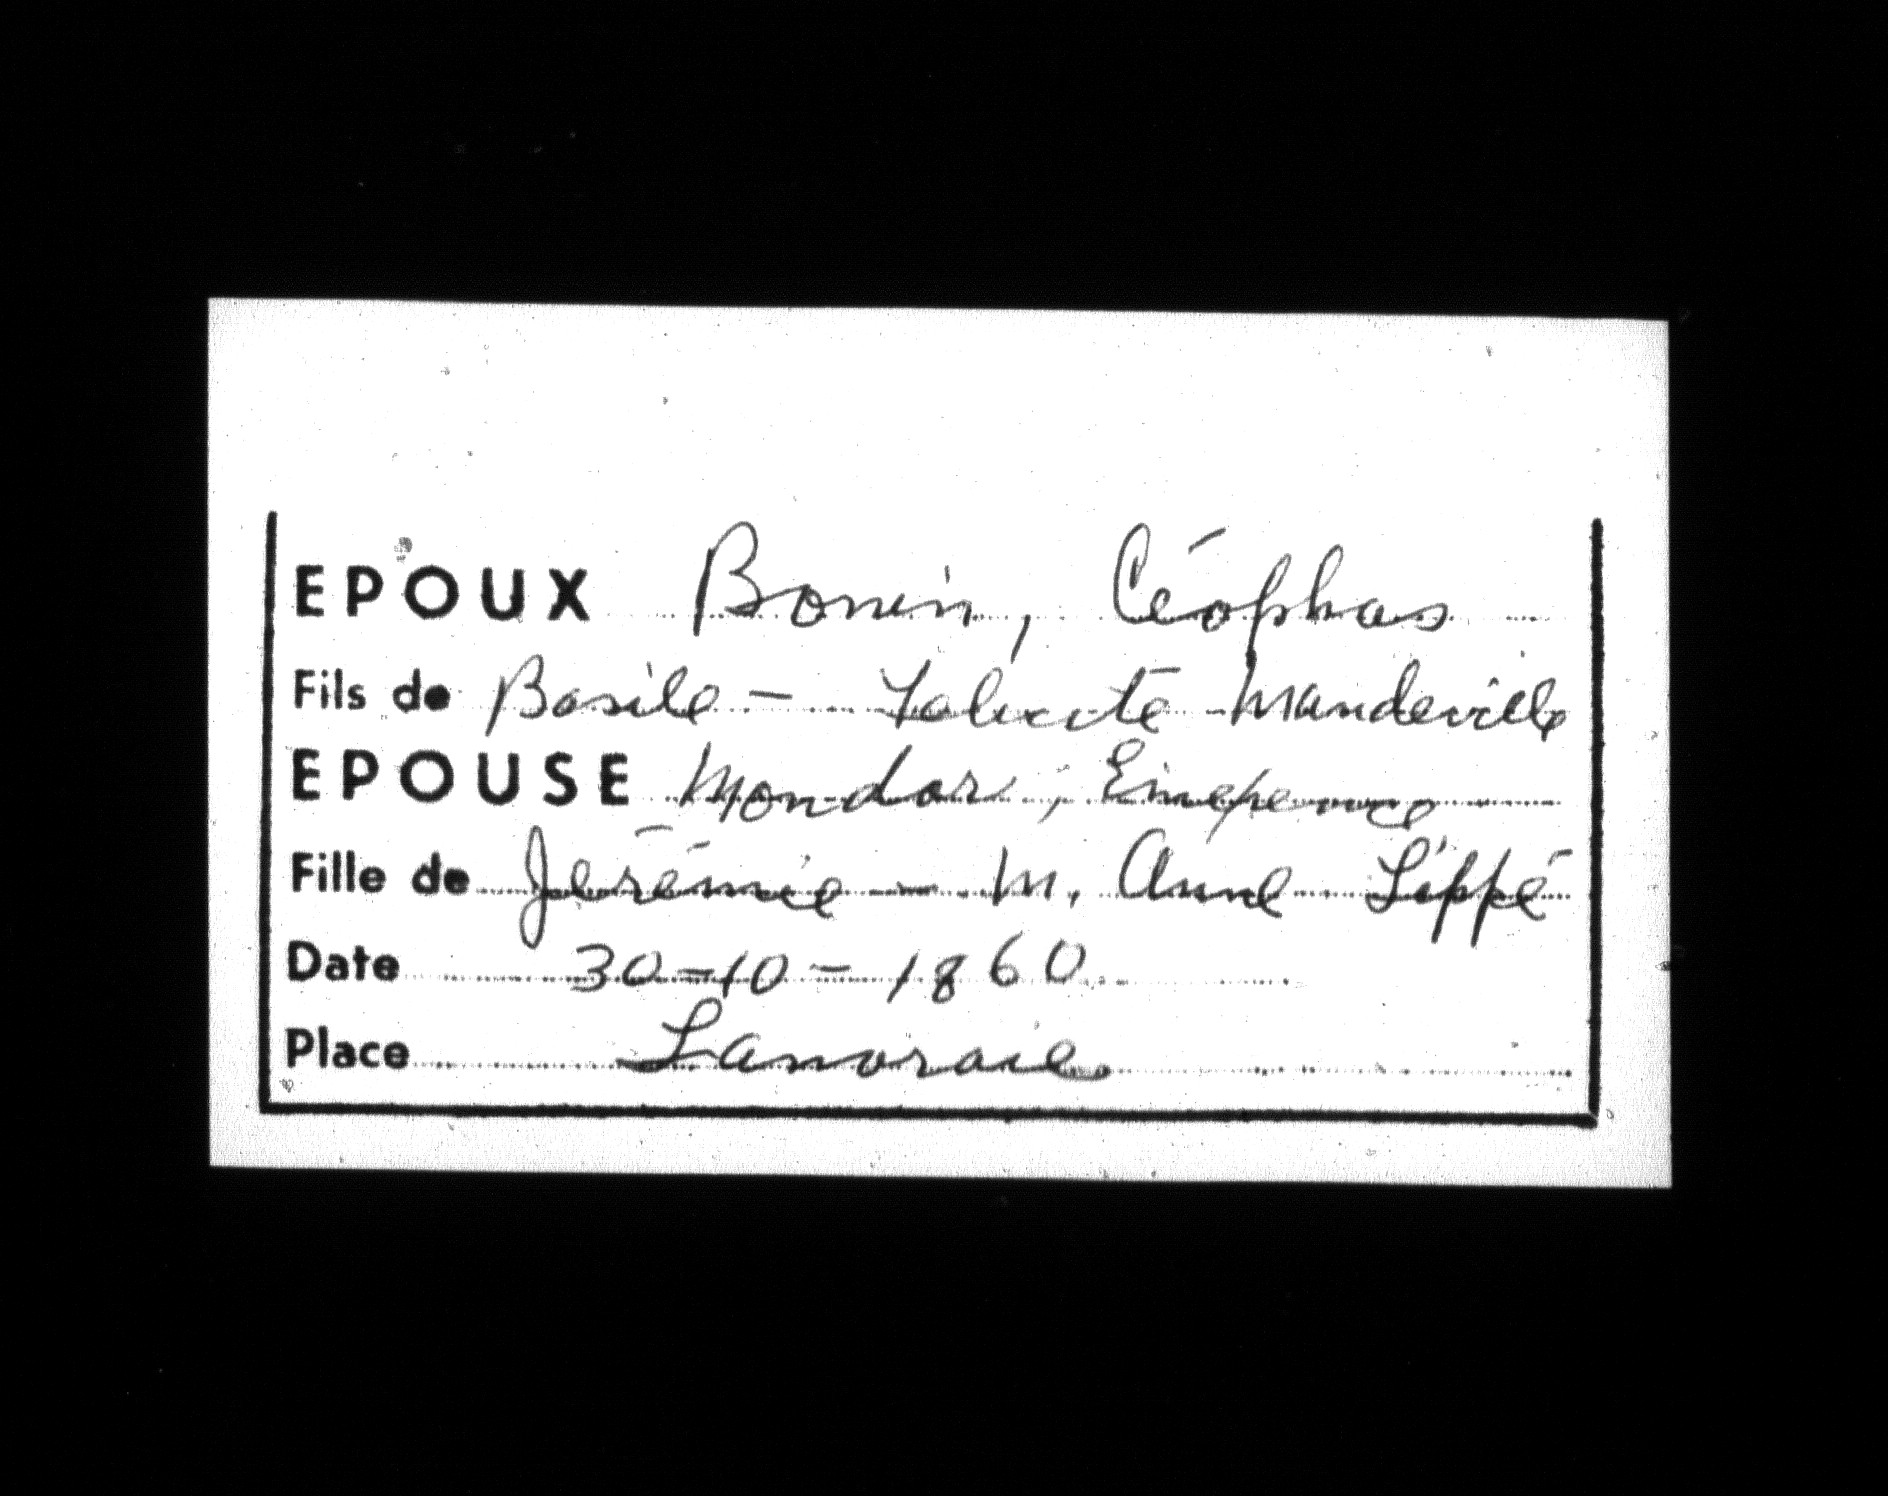 EPOUX Bonin, Céophas
Fils de Basile - Felicité Mandeville
EPOUSE Mondor,
Fille de Jérémie - M. Anne Lippé
Date 30-10-1860
Place Lanoraie